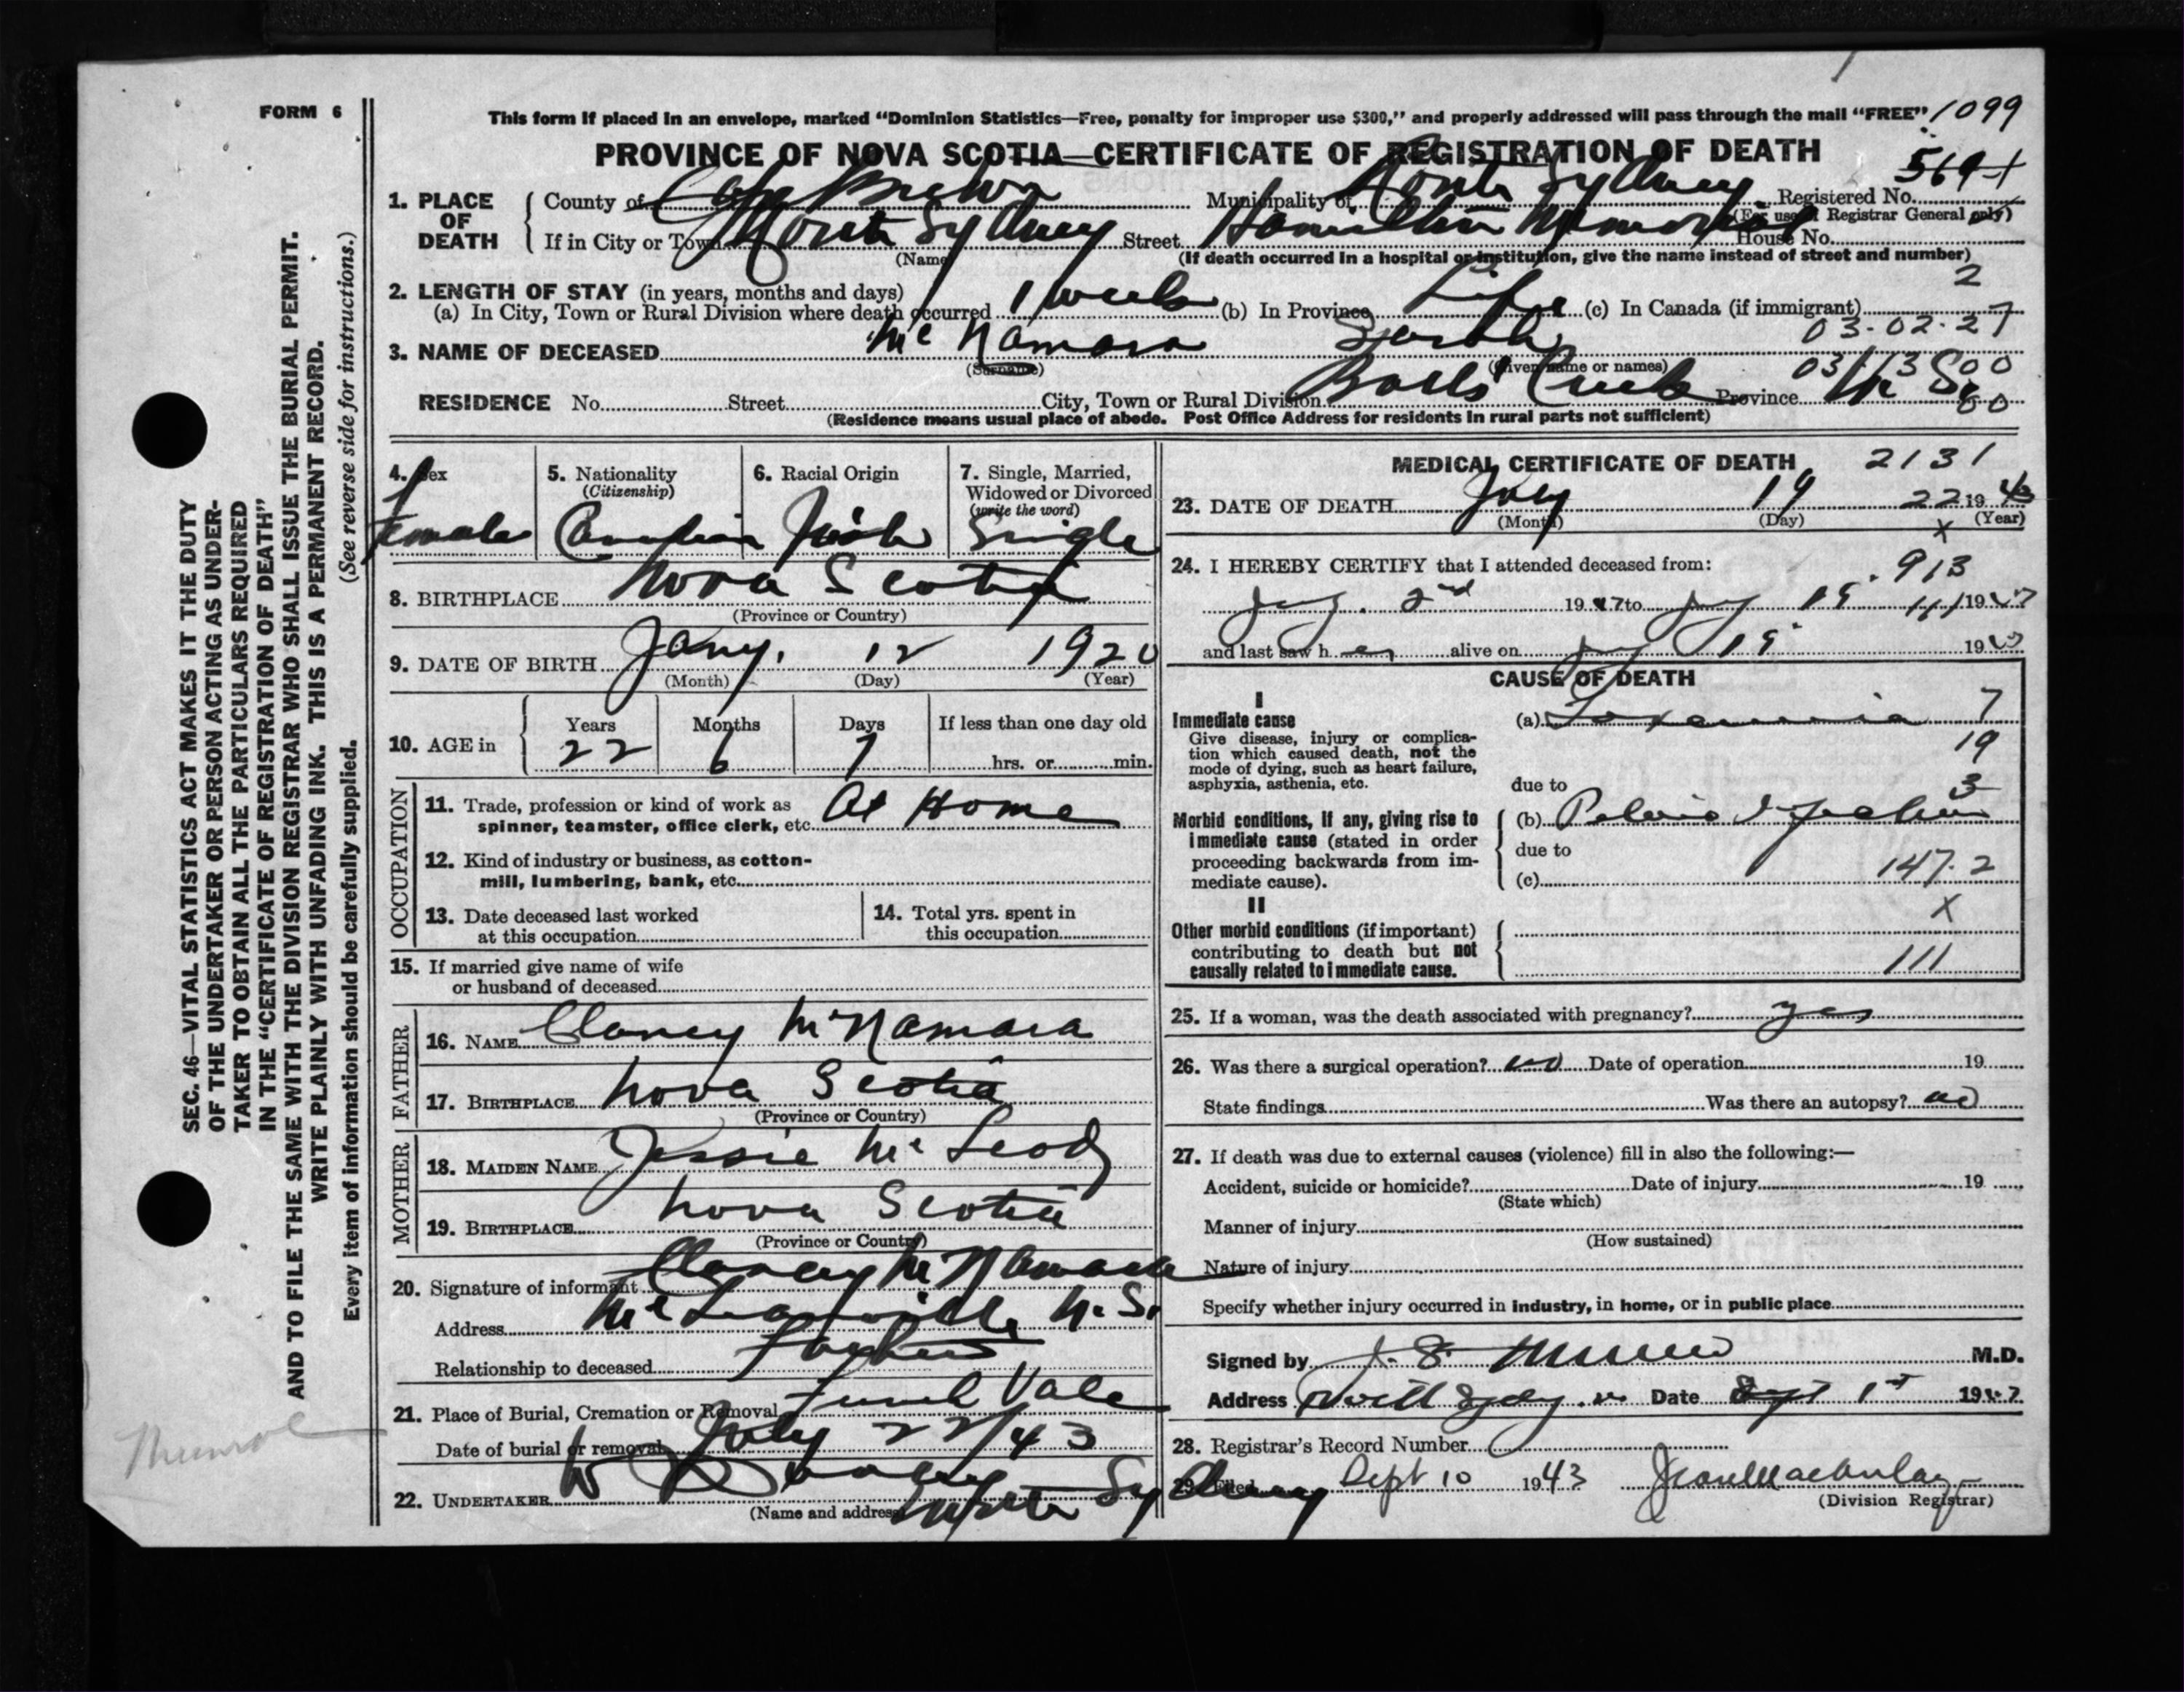 FORM 6
This form if placed in an envelope, marked "Dominion Statistics—Free, penalty for improper use $300," and properly addressed will pass through the mail "FREE". 1099
PROVINCE OF NOVA SCOTIA—CERTIFICATE OF REGISTRATION OF DEATH
1. PLACE OF DEATH
County of Cape Breton Municipality of North Sydney Registered No.
(For use of Registrar General only)
If in City or Town North Sydney Street Hamilton Memorial House No.
(Name) (If death occurred in a hospital or institution, give the name instead of street and number)
2. LENGTH OF STAY (in years, months and days) 2
(a) In City, Town or Rural Division where death occurred 1 week (b) In Province Life (c) In Canada (if immigrant)
03-02-27
3. NAME OF DECEASED Mc Namara Sarah
(Surname) (Given name or names)
RESIDENCE No. Street City, Town or Rural Division Balls Creek Province N. S.
(Residence means usual place of abode. Post Office Address for residents in rural parts not sufficient)
4. Sex Female
5. Nationality (Citizenship) Canadian
6. Racial Origin Irish
7. Single, Married, Widowed or Divorced (write the word) Single
8. BIRTHPLACE Nova Scotia
(Province or Country)
9. DATE OF BIRTH Jany. 12 1920
(Month) (Day) (Year)
10. AGE in Years 22 Months 6 Days 7 If less than one day old hrs. or min.
OCCUPATION
11. Trade, profession or kind of work as spinner, teamster, office clerk, etc. At Home
12. Kind of industry or business, as cotton-mill, lumbering, bank, etc.
13. Date deceased last worked at this occupation
14. Total yrs. spent in this occupation
15. If married give name of wife or husband of deceased
FATHER
16. NAME Clancy McNamara
17. BIRTHPLACE Nova Scotia
(Province or Country)
MOTHER
18. MAIDEN NAME Jessie Mc Leod
19. BIRTHPLACE Nova Scotia
(Province or Country)
20. Signature of informant Clancy McNamara
Address N. S.
Relationship to deceased Father
21. Place of Burial, Cremation or Removal Vale
Date of burial or removal July 22/43
22. UNDERTAKER W North Sydney
(Name and address)
MEDICAL CERTIFICATE OF DEATH 2131
23. DATE OF DEATH July 19 22 1943
(Month) (Day) (Year)
x
24. I HEREBY CERTIFY that I attended deceased from:
913
July 2nd 19 to July 19 19
111
and last saw her alive on July 19 19
CAUSE OF DEATH
I
Immediate cause
Give disease, injury or complication which caused death, not the mode of dying, such as heart failure, asphyxia, asthenia, etc.
(a) Toxaemia 7
19
due to 3
Morbid conditions, if any, giving rise to immediate cause (stated in order proceeding backwards from immediate cause).
(b) Pelvic
due to
(c) 147.2
II x
Other morbid conditions (if important) contributing to death but not causally related to immediate cause.
111
25. If a woman, was the death associated with pregnancy? yes
26. Was there a surgical operation? no Date of operation 19
State findings Was there an autopsy? no
27. If death was due to external causes (violence) fill in also the following:—
Accident, suicide or homicide? Date of injury 19
(State which)
Manner of injury
(How sustained)
Nature of injury
Specify whether injury occurred in industry, in home, or in public place
Signed by J. S. Munro M.D.
Address North Sydney Date Sept 1st 19
28. Registrar's Record Number
29. Filed Sept 10 1943
(Division Registrar)
SEC. 46—VITAL STATISTICS ACT MAKES IT THE DUTY
OF THE UNDERTAKER OR PERSON ACTING AS UNDER-
TAKER TO OBTAIN ALL THE PARTICULARS REQUIRED
IN THE "CERTIFICATE OF REGISTRATION OF DEATH"
AND TO FILE THE SAME WITH THE DIVISION REGISTRAR WHO SHALL ISSUE THE BURIAL PERMIT.
WRITE PLAINLY WITH UNFADING INK. THIS IS A PERMANENT RECORD.
Every item of information should be carefully supplied. (See reverse side for instructions.)